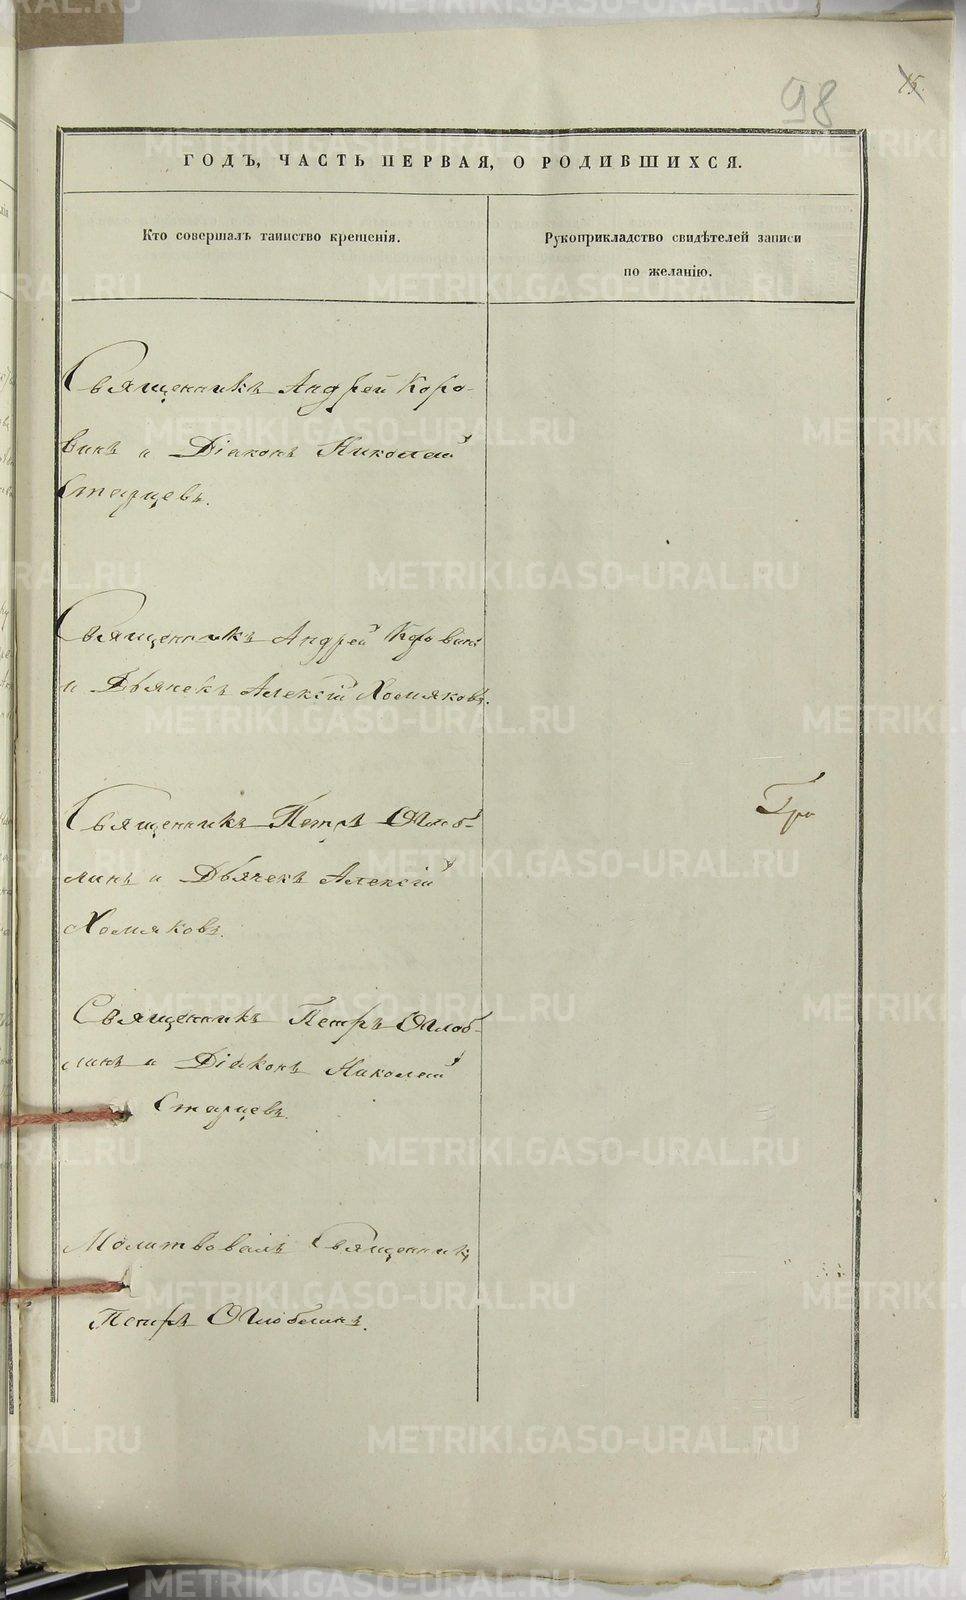 98
15.
ГОДЪ, ЧАСТЬ ПЕРВАЯ, О РОДИВШИХСЯ.
Кто совершалъ таинство крещенія.
Рукоприкладство свидѣтелей записи
по желанію.
Священникъ Андрей Коро-
винъ и Діаконъ Николай
Старцевъ.
Священникъ Андрей Коровинъ
и Дьячекъ Алексій Хомяковъ.
Священникъ Петръ Оглоб-
линъ и Дьячекъ Алексій
Хомяковъ.
Гри
Священникъ Петръ Оглоб-
линъ и Діаконъ Николай
Старцевъ.
Молитвовалъ Священникъ
Петръ Оглоблинъ.
METRIKI.GASO-URAL.RU